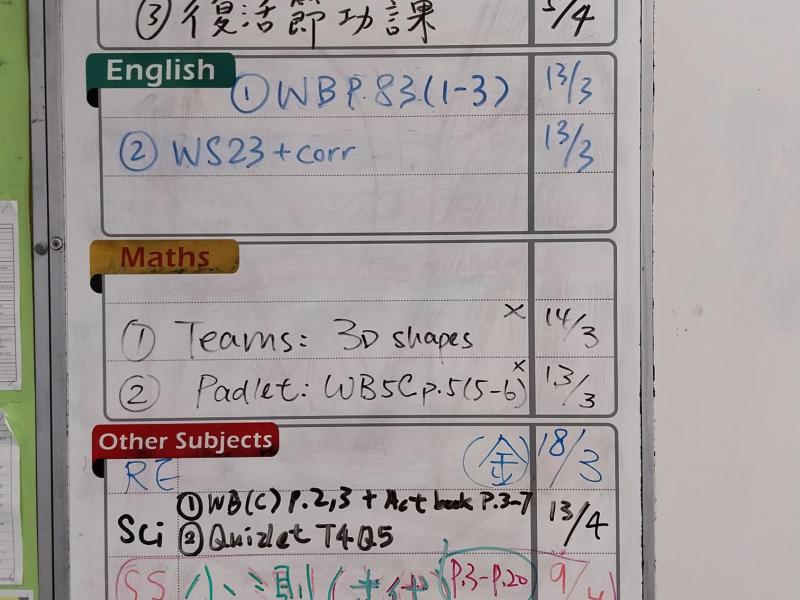 ③ 復活節功課 5/4
English
① WB P.83(1-3) 13/3
② WS23 + corr 13/3
Maths
① Teams: 3D shapes × 14/3
② Padlet: WB5C p.5(5-6) × 13/3
Other Subjects
RE (金) 18/3
① WB(C) P.2,3 + Act book P.3-7
Sci ② Quizlet T4Q5 13/4
SS 小測 P.3-P.20 9/4